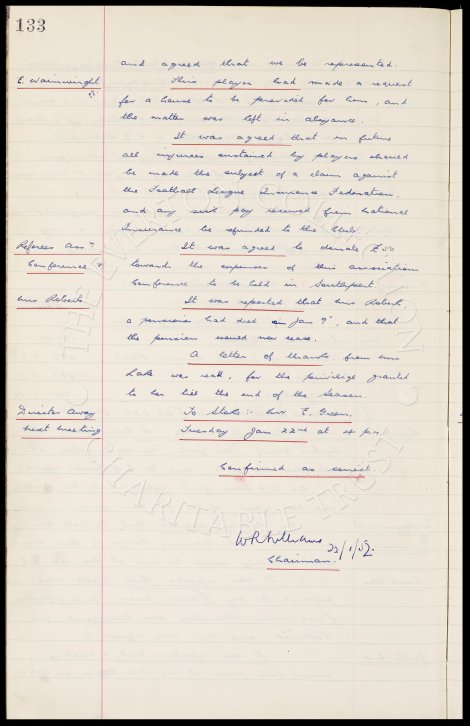 133
and agreed that we be represented.
E. Wainwright This player had made a request
for a house to be provided for him, and
the matter was left in abeyance.
It was agreed that in future
all injuries sustained by players should
be made the subject of a claim against
the Football League Insurance Federation,
and any sick pay received from National
Insurance be refunded to the Club.
Referees Assn It was agreed to donate £50
Conference towards the expenses of this association
Conference to be held in Southport.
Mrs Roberts It was reported that Mrs Roberts
a pensioner had died on Jan 9th, and that
the pension would now cease.
A letter of thanks from Mrs
Lake was read, for the privilege granted
to her till the end of the season.
Director Away To Stoke :- Mr E. Green.
next meeting Tuesday Jan 22nd at 4 p.m.
Confirmed as correct
W R Williams 22/1/52.
Chairman.
THE EVERTON COLLECTION
CHARITABLE TRUST